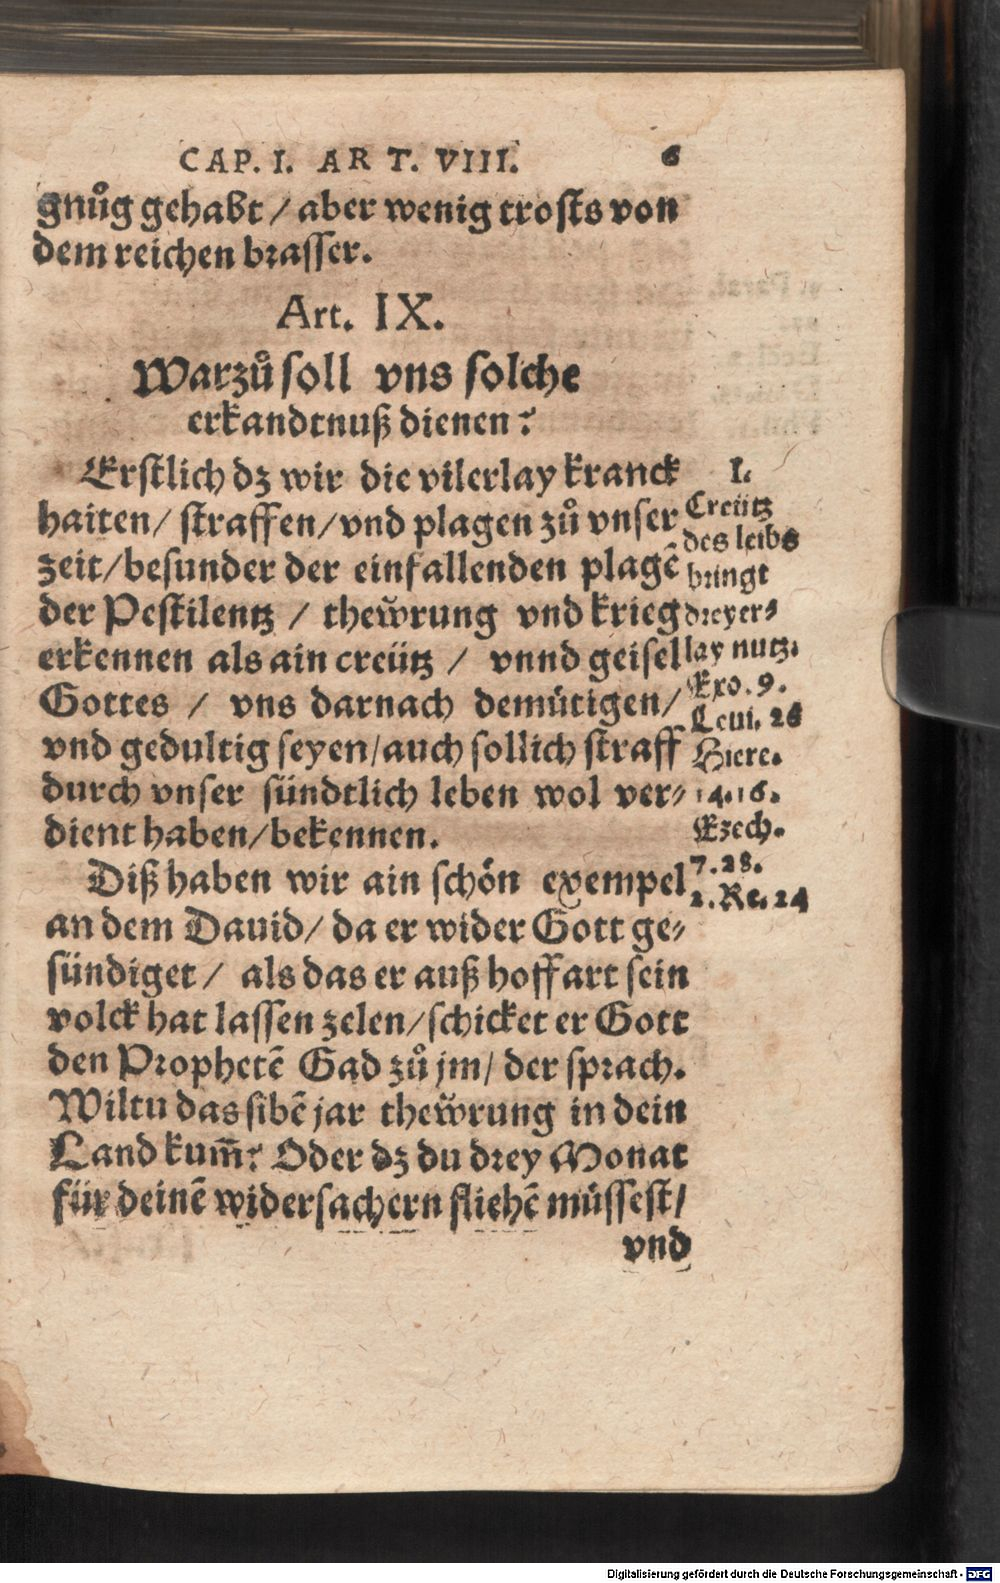 CAP. I. ART. VIII. 6
gnůg gehabt / aber wenig trosts von
dem reichen brasser.
Art. IX.
Warzů soll vns solche
erkandtnuß dienen?
Erstlich dz wir die vilerlay kranck
haiten / straffen / vnd plagen zů vnser
zeit / besunder der einfallenden plagẽ
der Pestilentz / thewrung vnd krieg
erkennen als ain creütz / vnnd geisel
Gottes / vns darnach demütigen /
vnd gedultig seyen / auch sollich straff
durch vnser sündtlich leben wol ver⸗
dient haben / bekennen.
I.
Creütz
des leibs
bringt
dreyer⸗
lay nutz.
Exo. 9.
Leui. 26
Hiere.
14. 16.
Ezech.
7. 28.
2. Re. 24
Diß haben wir ain schön exempel
an dem Dauid / da er wider Gott ge⸗
sündiget / als das er auß hoffart sein
volck hat lassen zelen / schicket er Gott
den Prophetẽ Gad zů jm / der sprach.
Wiltu das sibẽ jar thewrung in dein
Land kum̃? Oder dz du drey Monat
für deinẽ widersachern fliehẽ müssest /
vnd
Digitalisierung gefördert durch die Deutsche Forschungsgemeinschaft - DFG